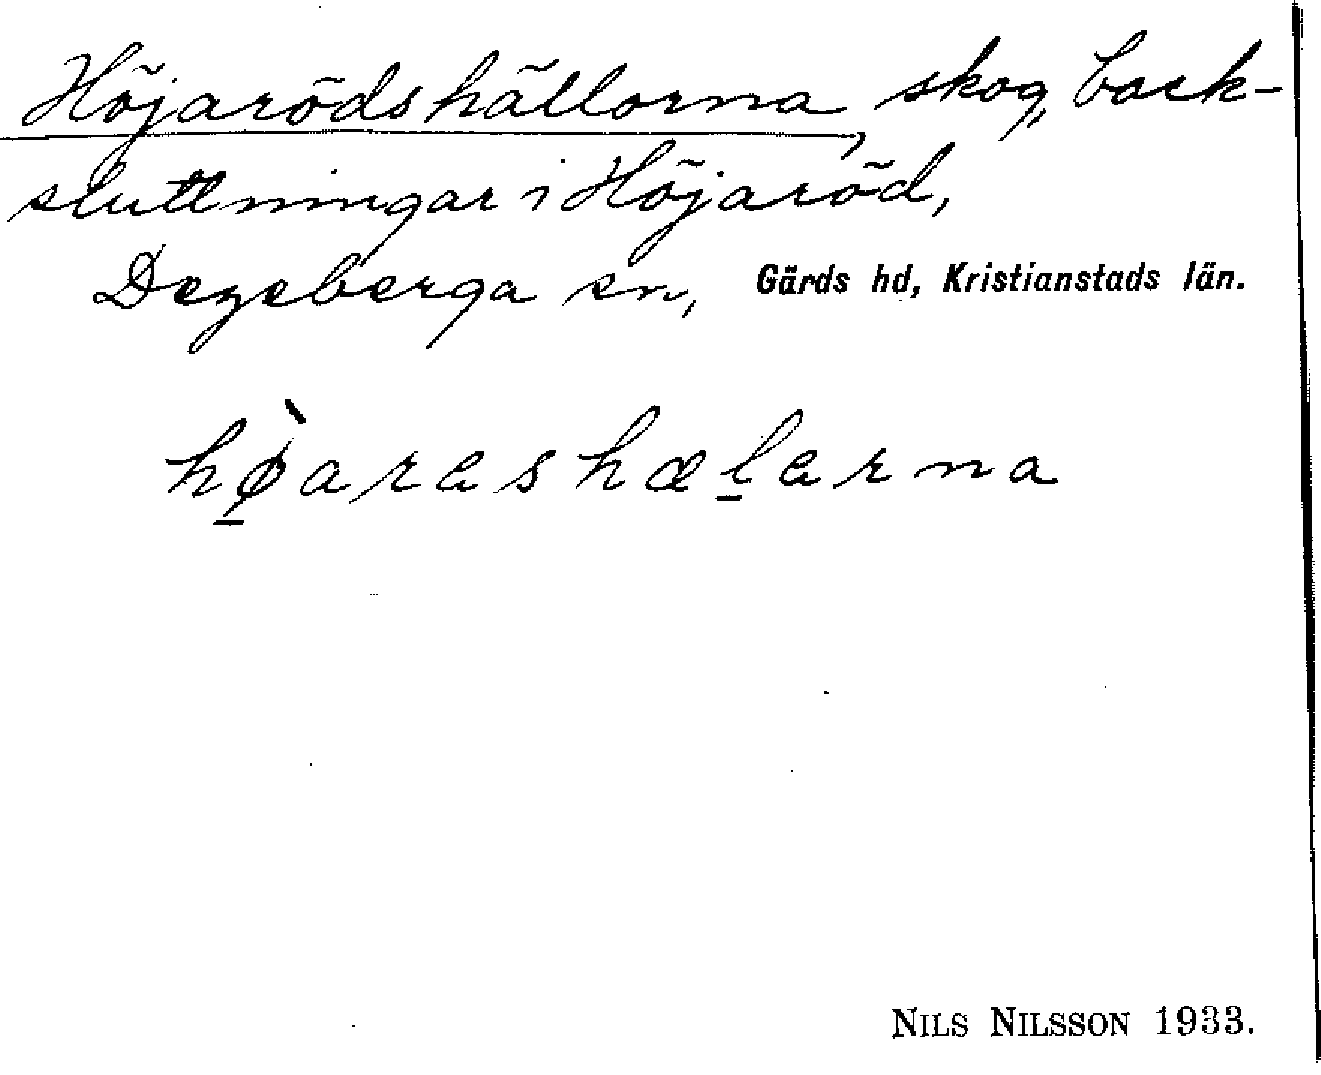 Höjarödshällorna, skog, back-
sluttningar i Höjaröd,
Degeberga sn, Gärds hd, Kristianstads län.
hø̠̀arashæl̠arna
NILS NILSSON 1933.